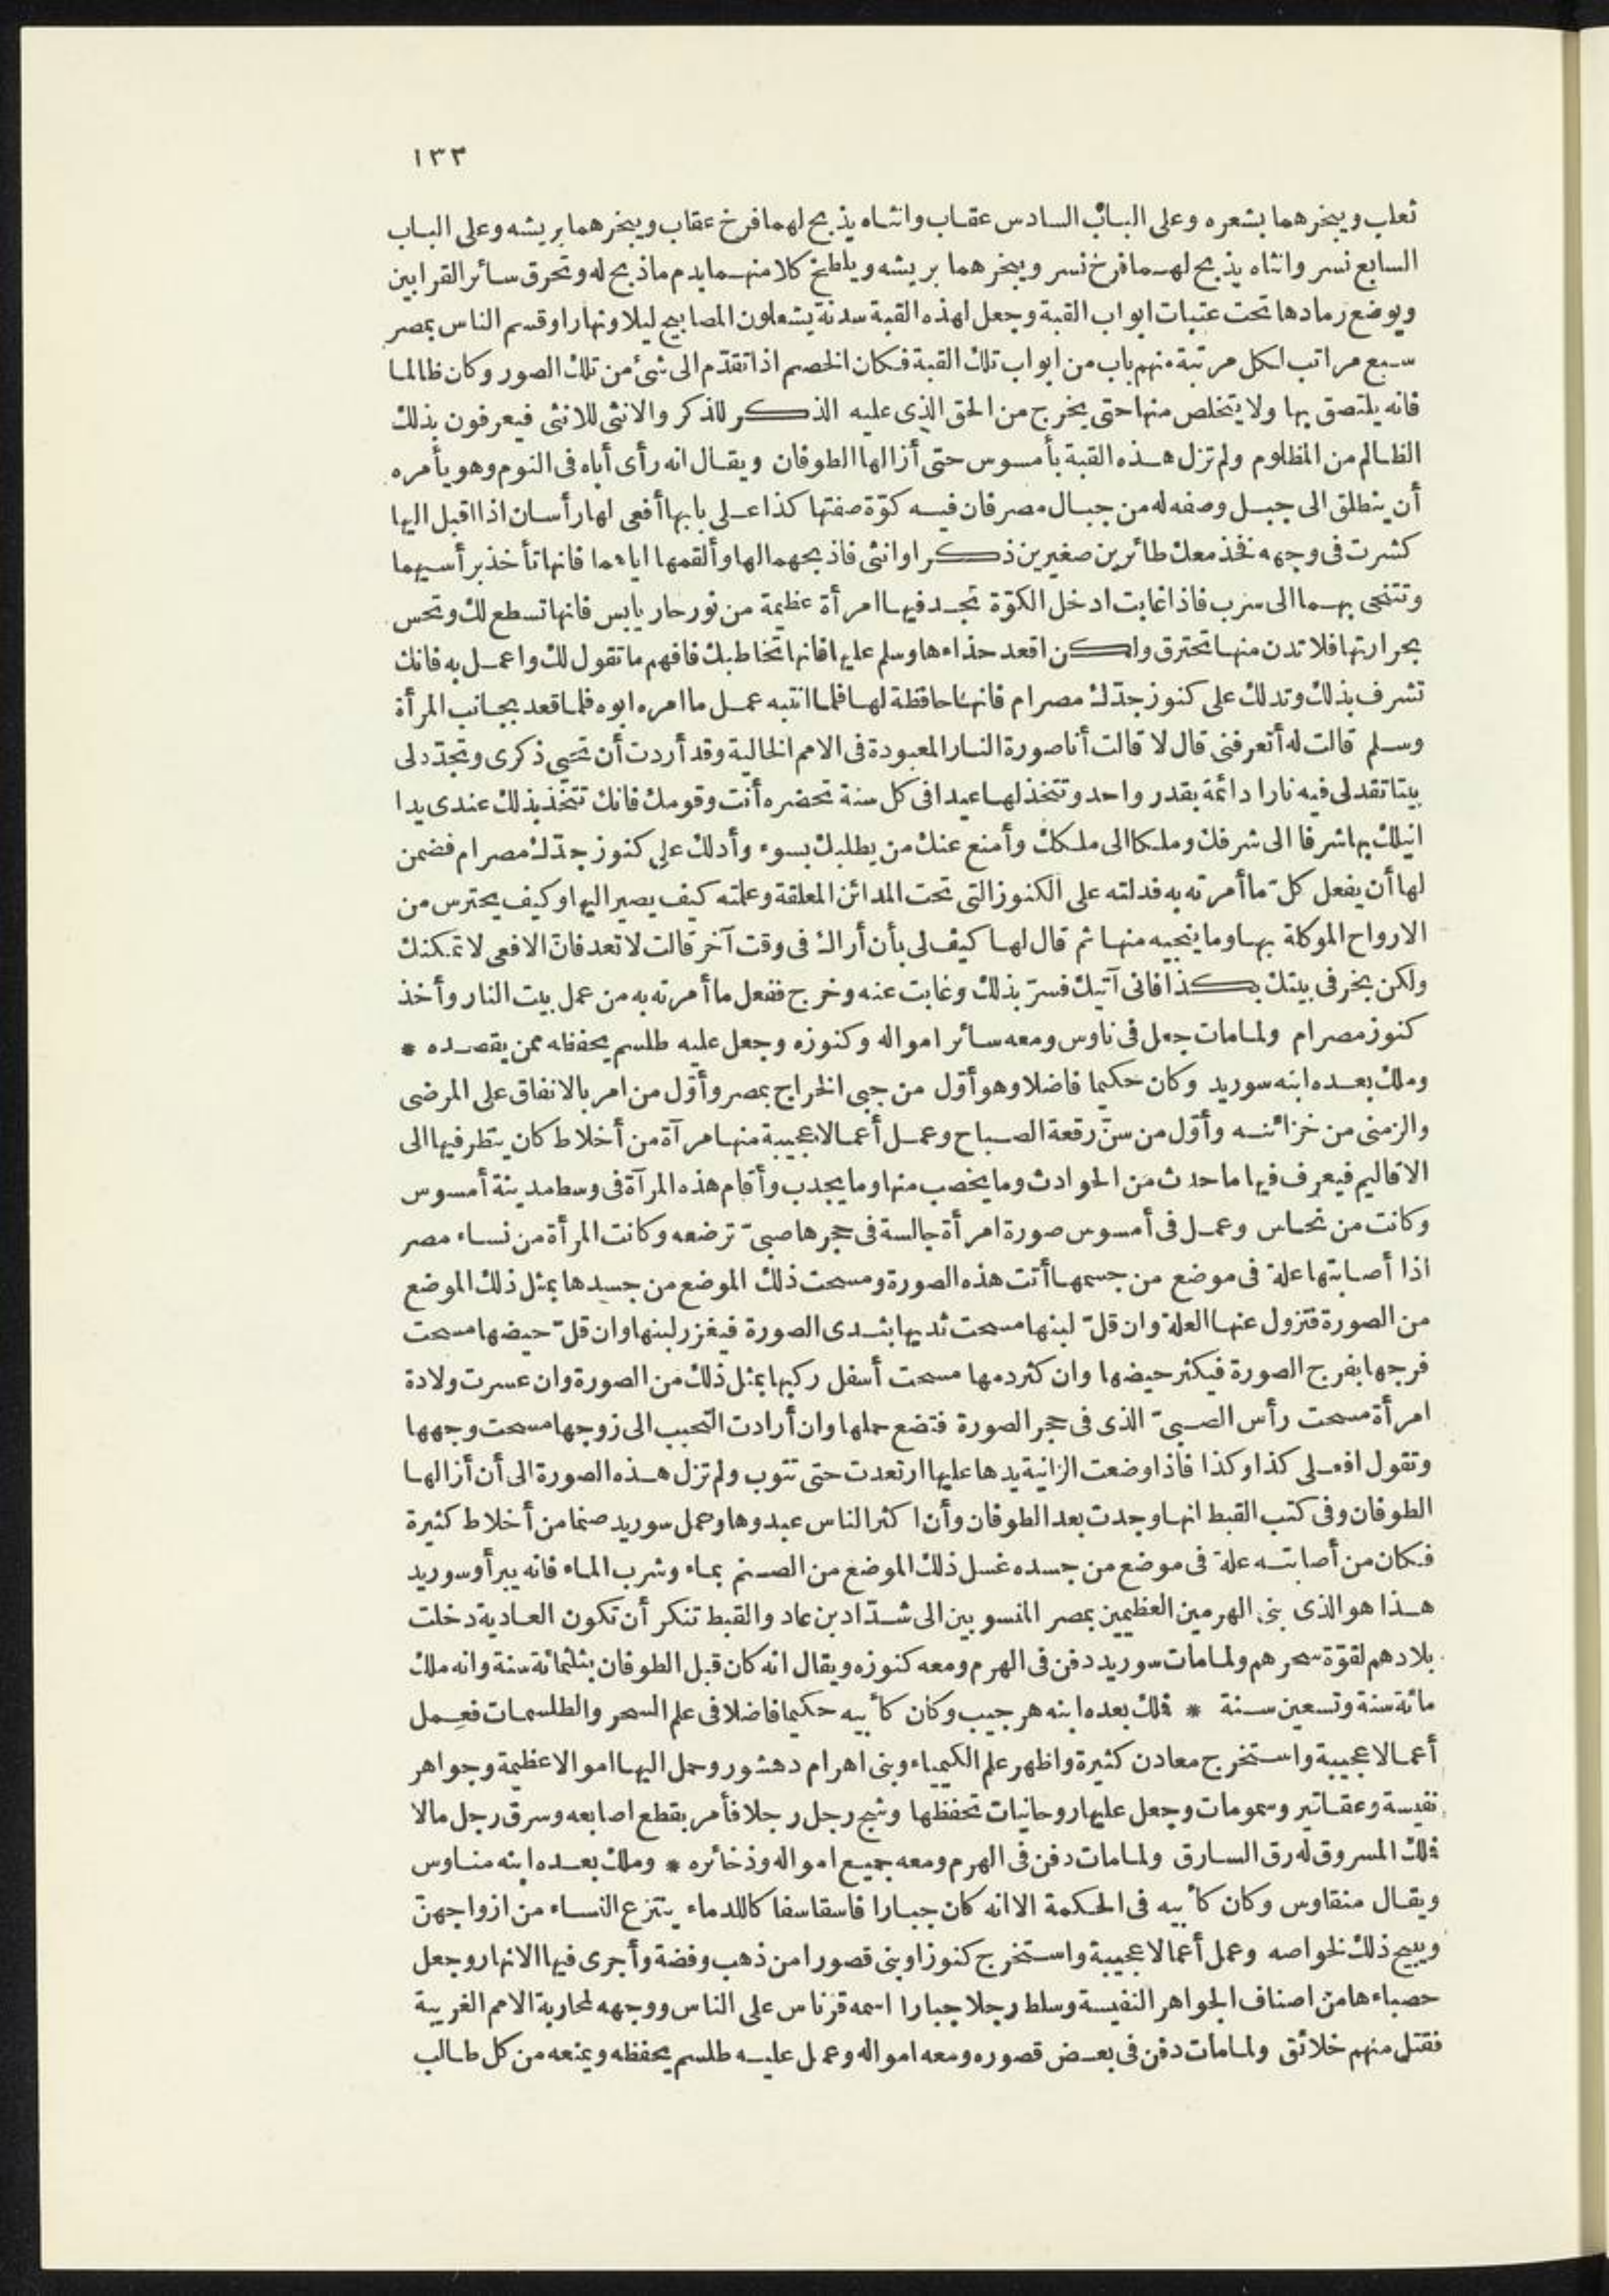 ١٣٣
ثعلب ويبخرهما بشعره وعلى الباب السادس عقاب وانثاه يذبح لهما فرخ عقاب ويبخرهما بريشه وعلى الباب
السابع نسر وانثاه يذبح لهما فرخ نسر ويبخرهما بريشه ويلطخ كلا منهما بدم ماذبح له وتحرق سائر القرابين
ويوضع رمادها تحت عتبات ابواب القبة وجعل لهذه القبة سدنة يشعلون المصابيح ليلا ونهارا وقسم الناس بمصر
سبع مراتب لكل مرتبة منهم باب من ابواب تلك القبة فكان الخصم اذا تقدّم الى شئ من تلك الصور وكان ظالما
فانه يلتصق بها ولا يتخلص منها حتى يخرج من الحق الذى عليه الذكر للذكر والانثى للانثى فيعرفون بذلك
الظالم من المظلوم ولم تزل هذه القبة بأمسوس حتى أزالها الطوفان ويقال انه رأى أباه فى النوم وهو يأمره
أن ينطلق الى جبل وصفه له من جبال مصر فان فيه كوّة صفتها كذا على بابها أفعى لها رأسان اذا اقبل اليها
كشرت فى وجهه فخذ معك طائرين صغيرين ذكرا وانثى فاذبحهما لها وألقمها اياهما فانها تأخذ برأسيهما
وتتنحى بهما الى سرب فاذا غابت ادخل الكوّة تجد فيها امرأة عظيمة من نور حار يابس فانها تسطع لك وتحس
بحرارتها فلا تدن منها تحترق ولكن اقعد حذاءها وسلم عليها فانها تخاطبك فافهم ما تقول لك واعمل به فانك
تشرف بذلك وتدلك على كنوز جدّك مصرام فانها حافظة لها فلما انتبه عمل ما امره ابوه فلما قعد بجانب المرأة
وسلم قالت له أتعرفنى قال لا قالت أنا صورة النار المعبودة فى الامم الخالية وقد أردت أن تحيى ذكرى وتجدّد لى
بيتا تقد لى فيه نارا دائمة بقدر واحد وتتخذ لها عيدا فى كل سنة تحضره أنت وقومك فانك تتخذ بذلك عندى يدا
انيلك بها شرفا الى شرفك وملكا الى ملكك وأمنع عنك من يطلبك بسوء وأدلك على كنوز جدّك مصرام فضمن
لها أن يفعل كلّ ما أمرته به فدلته على الكنوز التى تحت المدائن المعلقة وعلمته كيف يصير اليها وكيف يحترس من
الارواح الموكلة بها وما ينجيه منها ثم قال لها كيف لى بأن أراك فى وقت آخر قالت لا تعد فانّ الافعى لا تمكنك
ولكن بخر فى بيتك بكذا فانى آتيك فسرّ بذلك وغابت عنه وخرج ففعل ما أمرته به من عمل بيت النار وأخذ
كنوز مصرام ولما مات جعل فى ناوس ومعه سائر امواله وكنوزه وجعل عليه طلسم يحفظه ممن يقصده *
وملك بعده ابنه سوريد وكان حكيما فاضلا وهو أوّل من جبى الخراج بمصر وأوّل من امر بالانفاق على المرضى
والزمنى من خزائنه وأوّل من سنّ رقعة الصباح وعمل أعمالا عجيبة منها مرآة من أخلاط كان ينظر فيها الى
الاقاليم فيعرف فيها ما حدث من الحوادث وما يخصب منها وما يجدب وأقام هذه المرآة فى وسط مدينة أمسوس
وكانت من نحاس وعمل فى أمسوس صورة امرأة جالسة فى حجرها صبىّ ترضعه وكانت المرأة من نساء مصر
اذا أصابتها علة فى موضع من جسمها أتت هذه الصورة ومسحت ذلك الموضع من جسدها بمثل ذلك الموضع
من الصورة فتزول عنها العلة وان قلّ لبنها مسحت ثديها بثدى الصورة فيغزر لبنها وان قلّ حيضها مسحت
فرجها بفرج الصورة فيكثر حيضها وان كثر دمها مسحت أسفل ركبها بمثل ذلك من الصورة وان عسرت ولادة
امرأة مسحت رأس الصبىّ الذى فى حجر الصورة فتضع حملها وان أرادت التحبب الى زوجها مسحت وجهها
وتقول افعلى كذا وكذا فاذا وضعت الزانية يدها عليها ارتعدت حتى تتوب ولم تزل هذه الصورة الى أن أزالها
الطوفان وفى كتب القبط انها وجدت بعد الطوفان وأن اكثر الناس عبدوها وعمل سوريد صنما من أخلاط كثيرة
فكان من أصابته علة فى موضع من جسده غسل ذلك الموضع من الصنم بماء وشرب الماء فانه يبرأ وسوريد
هذا هو الذى بنى الهرمين العظيمين بمصر المنسوبين الى شدّاد بن عاد والقبط تنكر أن تكون العادية دخلت
بلادهم لقوّة سحرهم ولما مات سوريد دفن فى الهرم ومعه كنوزه ويقال انه كان قبل الطوفان بثلثمائة سنة وانه ملك
مائة سنة وتسعين سنة * فملك بعده ابنه هرجيب وكان كأبيه حكيما فاضلا فى علم السحر والطلسمات فعمل
أعمالا عجيبة واستخرج معادن كثيرة واظهر علم الكيمياء وبنى اهرام دهشور وحمل اليها اموالا عظيمة وجواهر
نفيسة وعقاتير وسمومات وجعل عليها روحانيات تحفظها وشج رجل رجلا فأمر بقطع اصابعه وسرق رجل مالا
فملك المسروق له رق السارق ولما مات دفن فى الهرم ومعه جميع امواله وذخائره * وملك بعده ابنه مناوس
ويقال منقاوس وكان كأبيه فى الحكمة الا انه كان جبارا فاسقا سفا كاللدماء ينتزع النساء من ازواجهنّ
ويبيح ذلك لخواصه وعمل أعمالا عجيبة واستخرج كنوزا وبنى قصورا من ذهب وفضة وأجرى فيها الانهار وجعل
حصباءها من اصناف الجواهر النفيسة وسلط رجلا جبارا اسمه قرناس على الناس ووجهه لمحاربة الامم الغربية
فقتل منهم خلائق ولما مات دفن فى بعض قصوره ومعه امواله وعمل عليه طلسم يحفظه ويمنعه من كل طالب